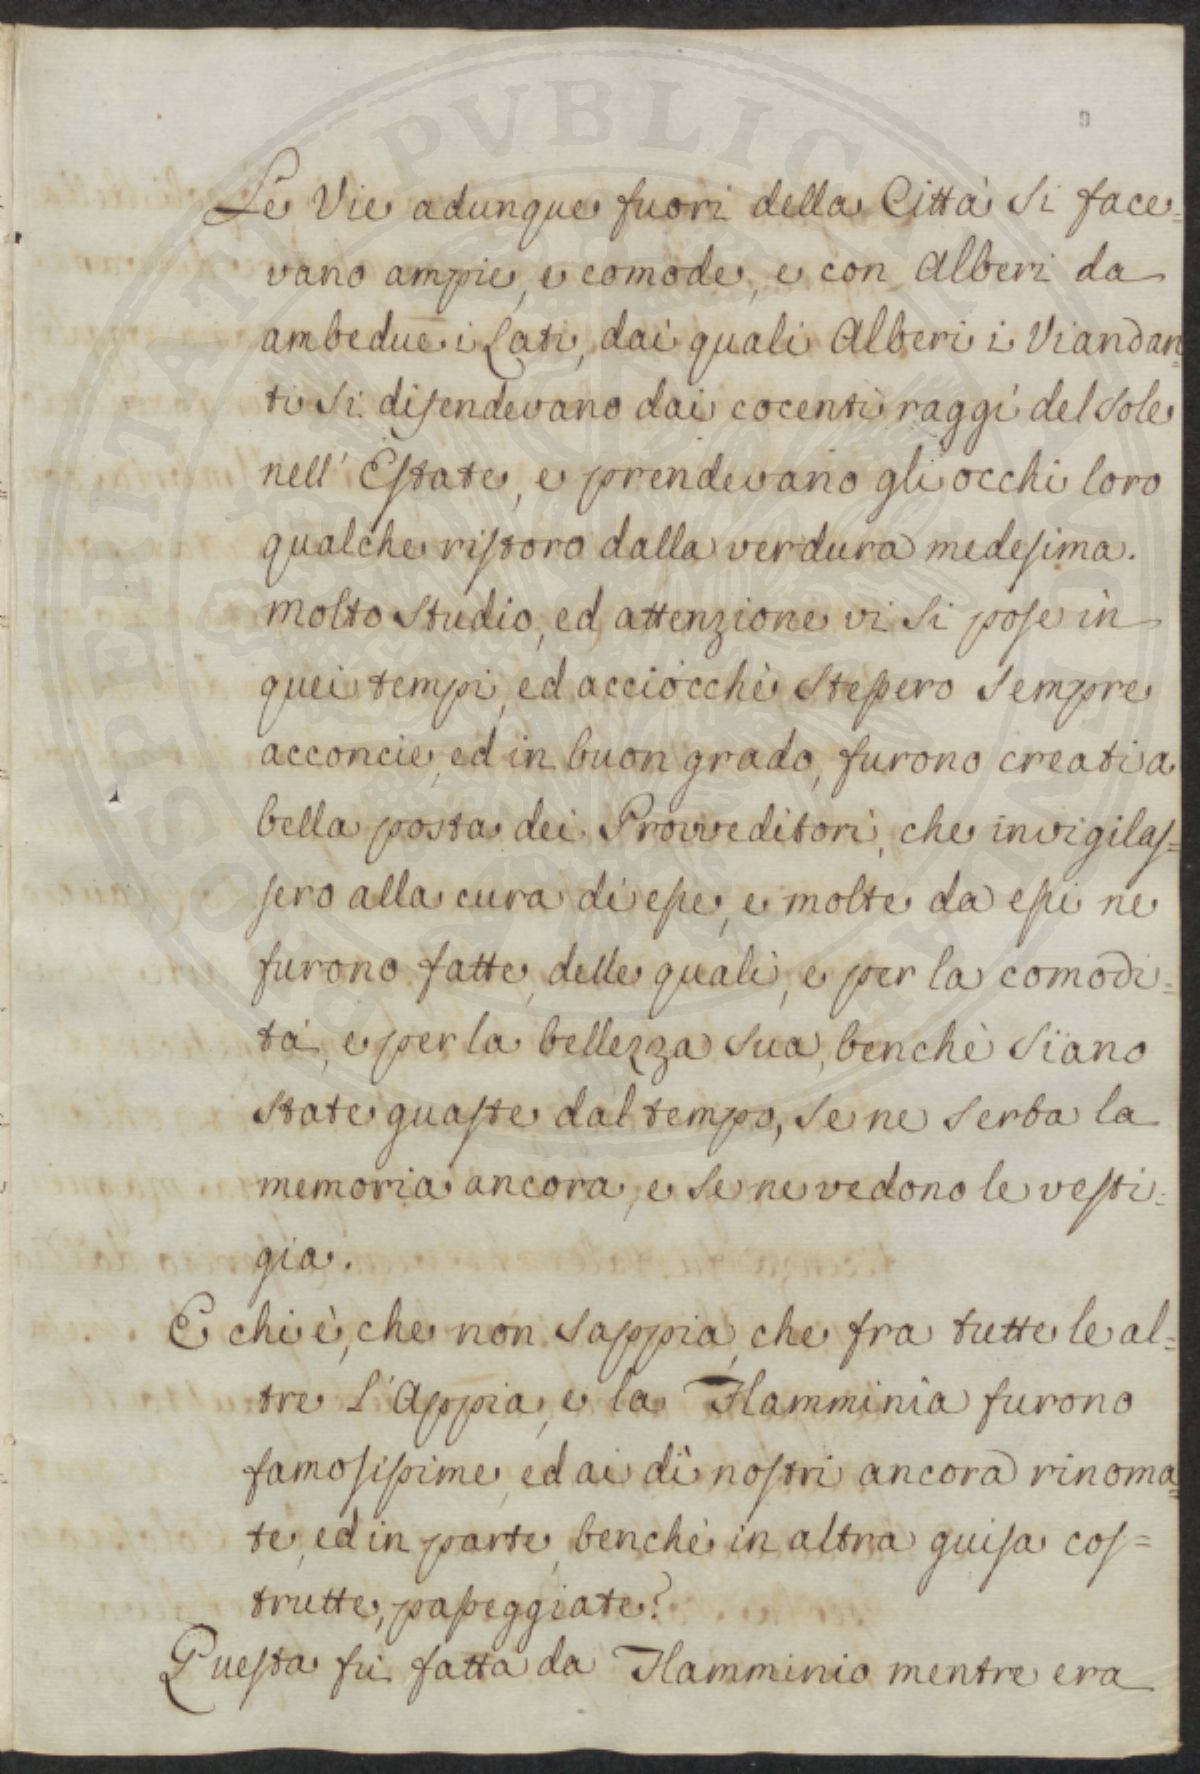 Le Vie adunque fuori della Città si face=
vano ampie, e comode, e con Alberi da
ambedue i Lati, dai quali Alberi i Viandan=
ti si difendevano dai cocenti raggi del sole
nell' Estate, e prendevano gli occhi loro
qualche ristoro dalla verdura medesima.
molto studio, ed attenzione vi si pose in
quei tempi, ed acciòcchè stessero sempre
acconcie, ed in buon grado, furono creati a
bella posta dei Provveditori, che invigilas=
sero alla cura di esse, e molte da essi ne
furono fatte, delle quali, e per la comodi=
tà, e per la bellezza sua, benchè siano
state guaste dal tempo, se ne serba la
memoria ancora, e se ne vedono le vesti=
gia.
E chi è, che non sappia, che fra tutte le al=
tre l'Appia, e la Flamminia furono
famosissime, ed ai dì nostri ancora rinoma=
te, ed in parte, benchè in altra guisa cos=
trutte, passeggiate?
Questa fù fatta da Flamminio mentre era
PROSPERITATI PVBLICAE